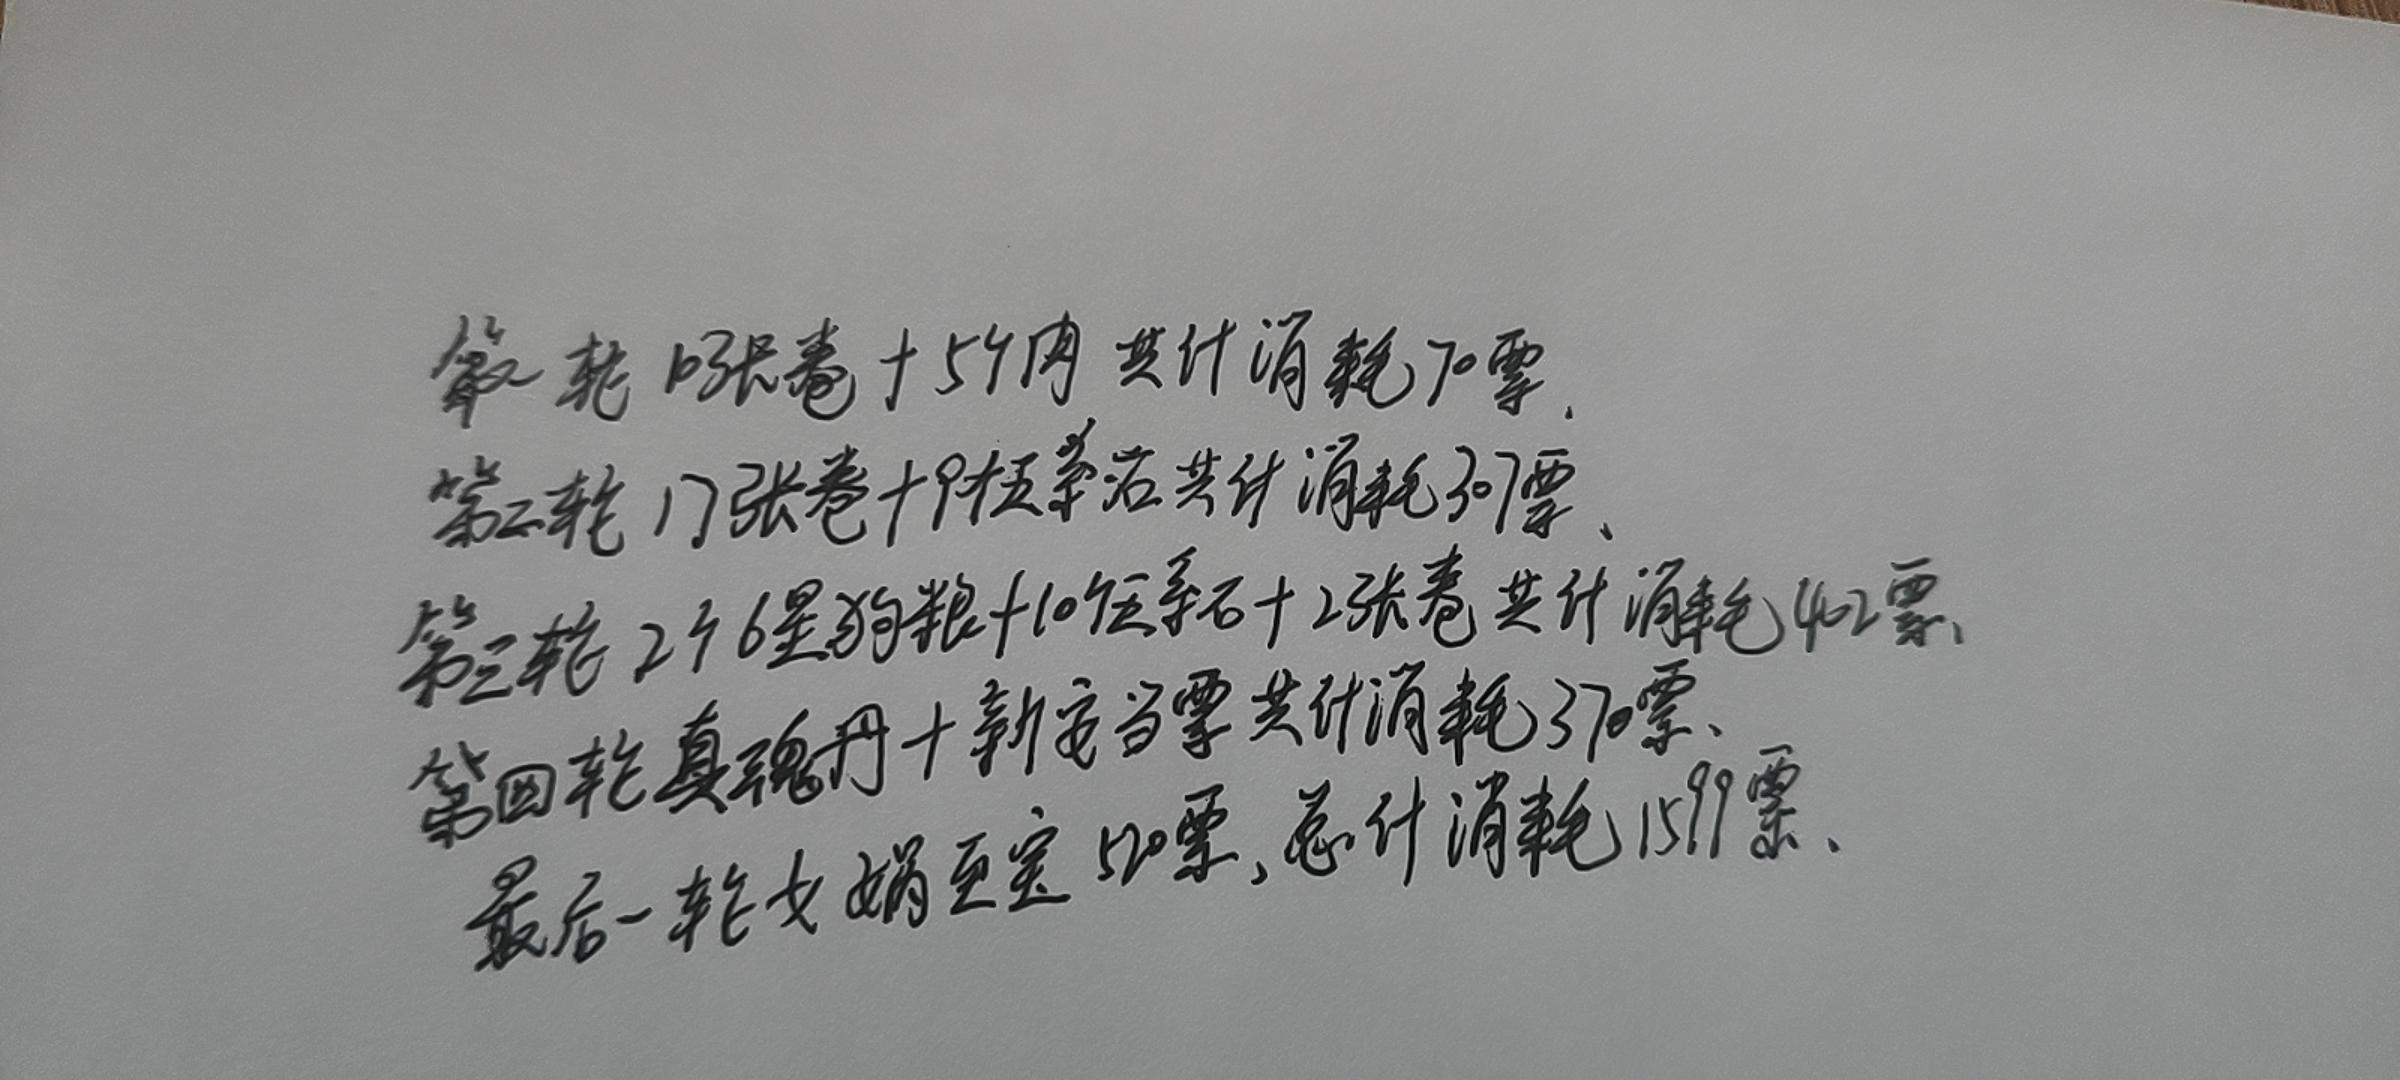 第一轮 10张卷+5个肉 共计消耗70票、
第二轮 17张卷+9个五彩石共计消耗307票、
第三轮 2个6星狗粮+10个五彩石+2张卷共计消耗402票、
第四轮真魂丹+新票共计消耗370票、
最后一轮女娲至宝520票、总计消耗1599票、